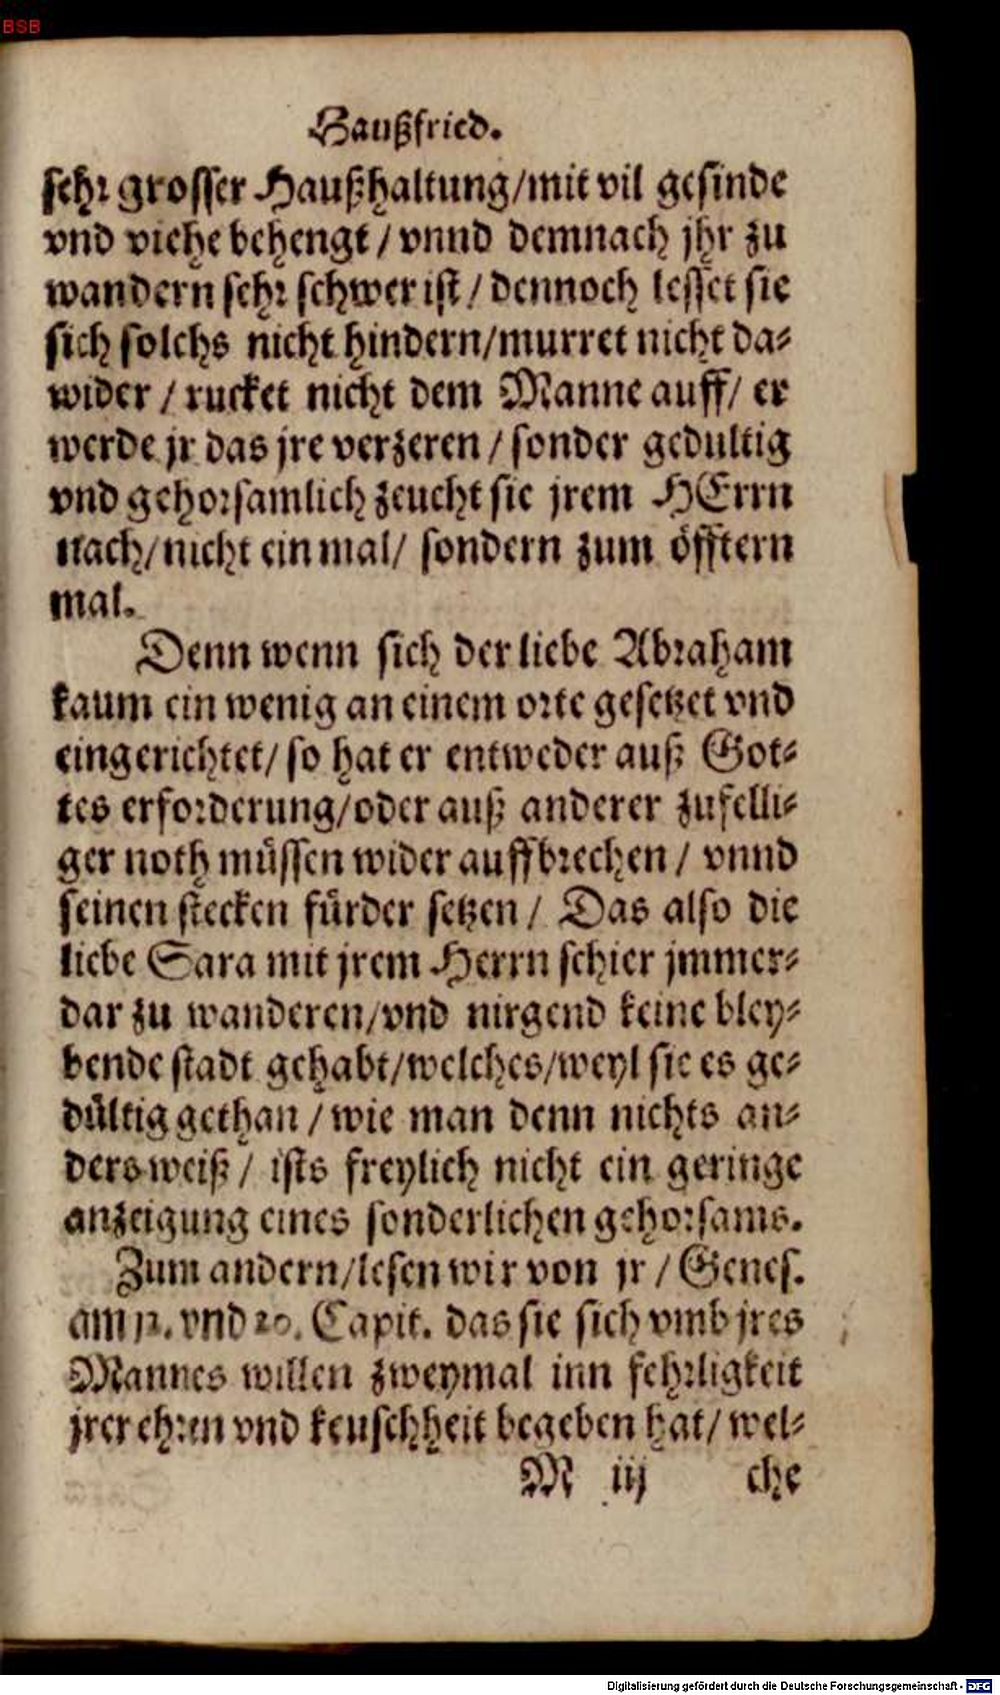 BSB
Haußfried.
sehr grosser Haußhaltung/mit vil gesinde
vnd viehe behengt / vnnd demnach jhr zu
wandern sehr schwer ist / dennoch lesset sie
sich solchs nicht hindern/murret nicht da⸗
wider / rucket nicht dem Manne auff/ er
werde jr das jre verzeren / sonder gedultig
vnd gehorsamlich zeucht sie jrem HErrn
nach/nicht ein mal/ sondern zum öfftern
mal.
Denn wenn sich der liebe Abraham
kaum ein wenig an einem orte gesetzet vnd
eingerichtet/ so hat er entweder auß Got⸗
tes erforderung/oder auß anderer zufelli⸗
ger noth müssen wider auffbrechen / vnnd
seinen stecken fürder setzen / Das also die
liebe Sara mit jrem Herrn schier jmmer⸗
dar zu wanderen/vnd nirgend keine bley⸗
bende stadt gehabt/welches/weyl sie es ge⸗
dültig gethan / wie man denn nichts an⸗
ders weiß / ists freylich nicht ein geringe
anzeigung eines sonderlichen gehorsams.
Zum andern/lesen wir von jr / Genes.
am 12. vnd 20. Capit. das sie sich vmb jres
Mannes willen zweymal inn fehrligkeit
jrer ehren vnd keuschheit begeben hat/ wel⸗
M iij che
Digitalisierung gefördert durch die Deutsche Forschungsgemeinschaft - DFG